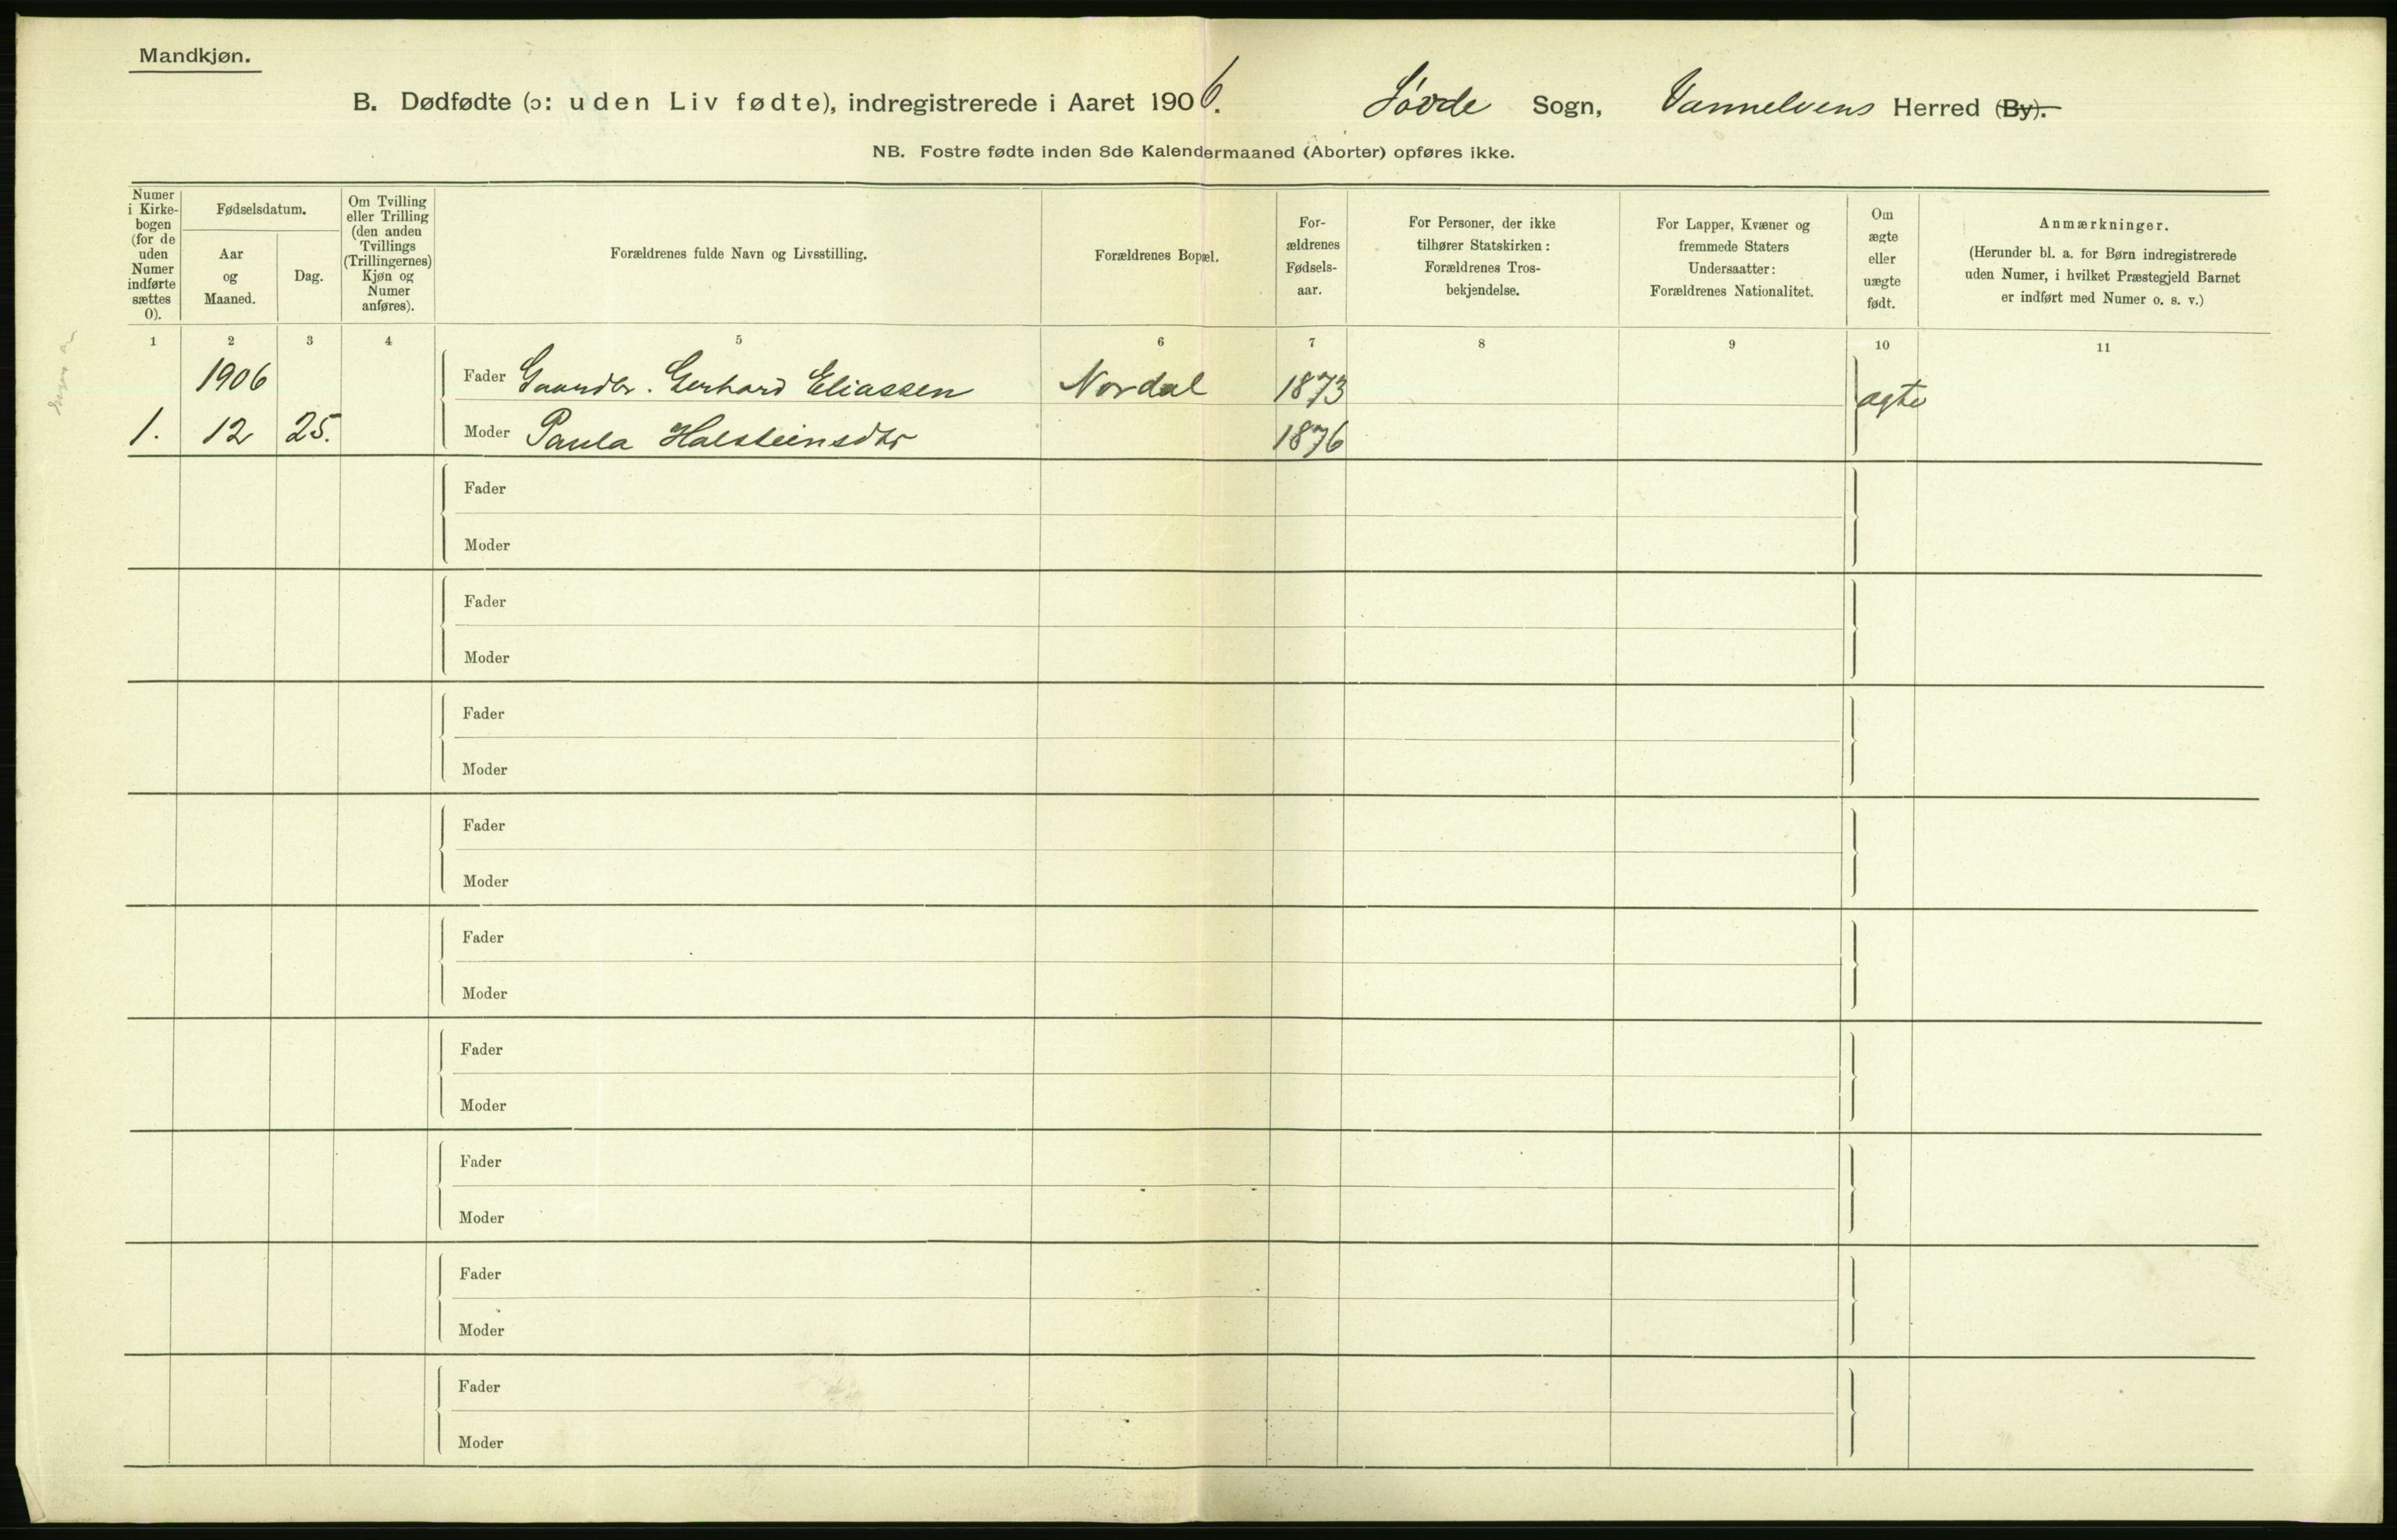 Mandkjøn.
B. Dødfødte (ɔ: uden Liv fødte), indregistrerede i Aaret 1906. Søvde Sogn, Vannelvens Herred (By).
NB. Fostre fødte inden 8de Kalendermaaned (Aborter) opføres ikke.
Numer
i Kirke-
bogen
(for de
uden
Numer
indførte
sættes
0).
Fødselsdatum.
Aar
og
Maaned.
Dag.
Om Tvilling
eller Trilling
(den anden
Tvillings
(Trillingernes)
Kjøn og
Numer
anføres).
Forældrenes fulde Navn og Livsstilling.
Forældrenes Bopæl.
For-
ældrenes
Fødsels-
aar.
For Personer, der ikke
tilhører Statskirken:
Forældrenes Tros-
bekjendelse.
For Lapper, Kvæner og
fremmede Staters
Undersaatter:
Forældrenes Nationalitet.
Om
ægte
eller
uægte
født.
Anmærkninger.
(Herunder bl. a. for Børn indregistrerede
uden Numer, i hvilket Præstegjeld Barnet
er indført med Numer o. s. v.)
1 2 3 4 5 6 7 8 9 10 11
1906 Fader Gaardbr. Gerhard Eliassen Nordal 1873 ægte
1. 12 25. Moder Paula Halsteinsdtr 1876
Fader
Moder
Fader
Moder
Fader
Moder
Fader
Moder
Fader
Moder
Fader
Moder
Fader
Moder
Fader
Moder
Fader
Moder